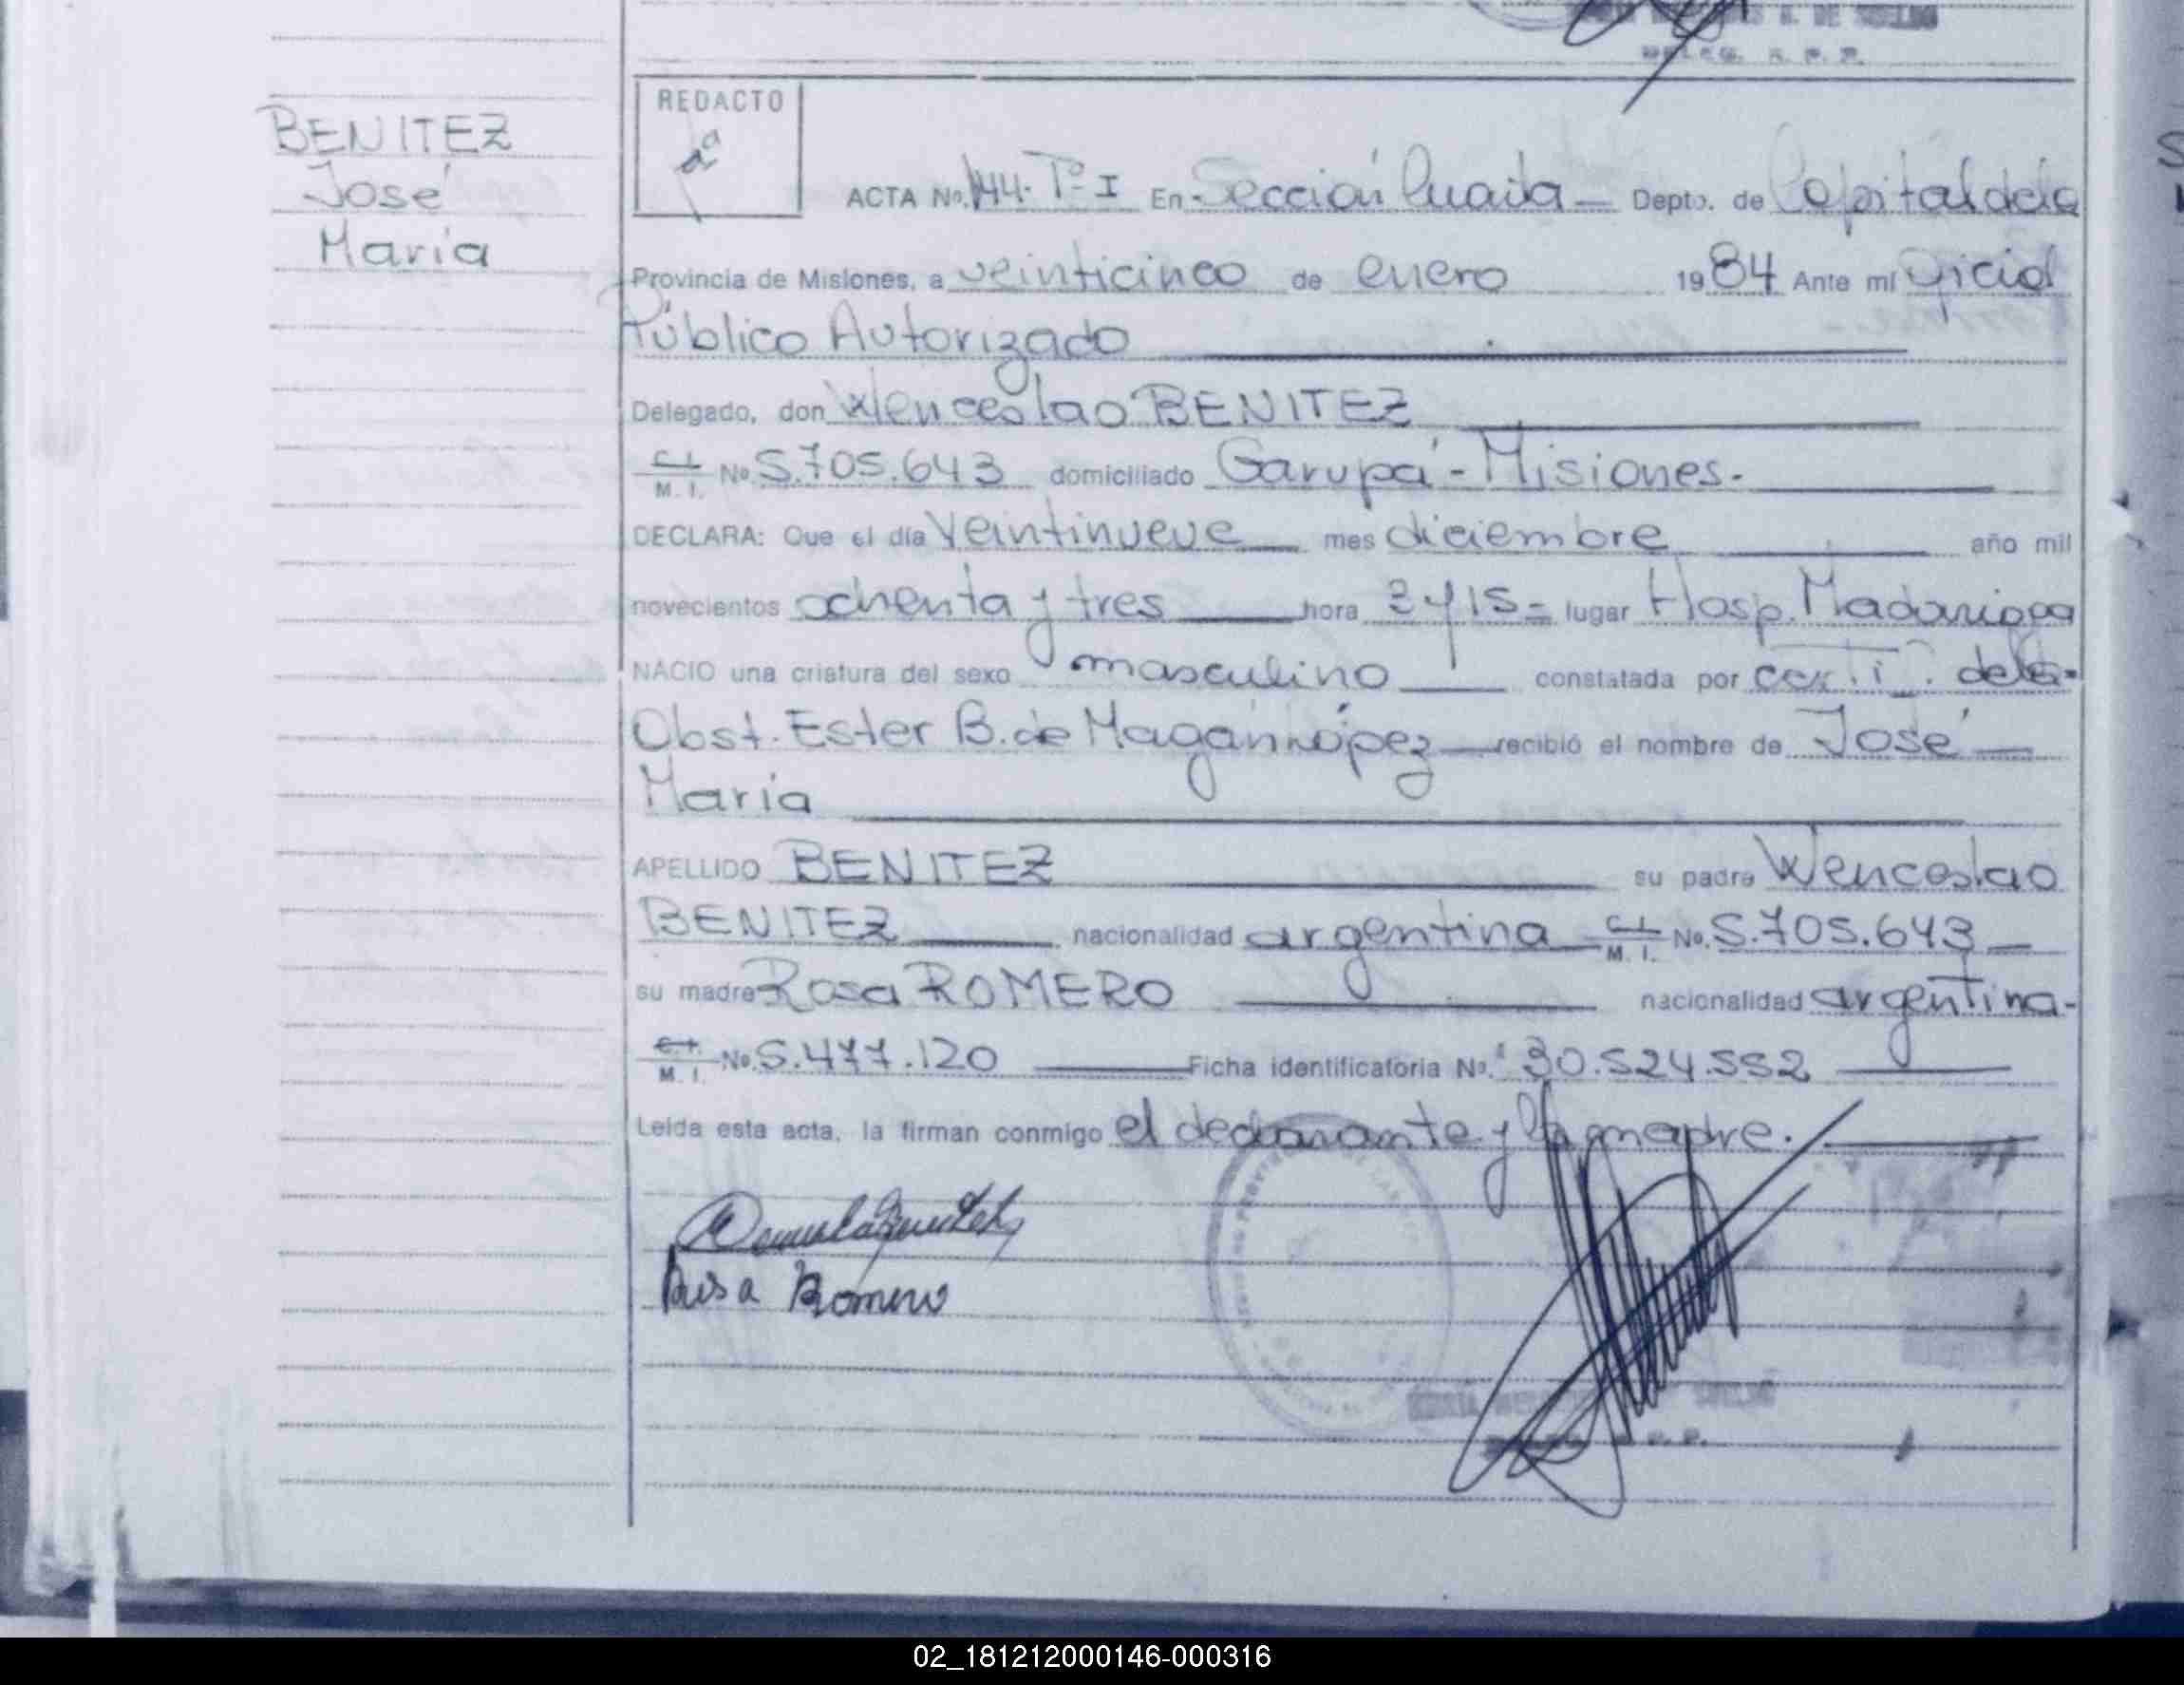 DELEG. R. P. P.
BENITEZ
José
María
REDACTO
2º
ACTA No. 144. Tº I En Sección Cuarta Depto. de Capital de la
Provincia de Misiones, a veinticinco de enero 1984 Ante mí Oficial
Público Autorizado
Delegado, don Wenceslao BENITEZ
C. I. M. I. No. 5.705.643 domiciliado Garupá - Misiones.
DECLARA: Que el día Veintinueve mes diciembre año mil
novecientos ochenta y tres hora 2 y 15 lugar Hosp. Madariaga
NACIO una criatura del sexo masculino constatada por certi. de la
Obst. Ester B. de Magán López recibió el nombre de José
María
APELLIDO BENITEZ su padre Wenceslao
BENITEZ nacionalidad argentina C. I. M. I. No. 5.705.643
su madre Rosa ROMERO nacionalidad argentina
C. I. M. I. No. 5.477.120 Ficha identificatoria No. 30.524.552
Leída esta acta, la firman conmigo el declarante y la madre.
Rosa Romero
02_181212000146-000316